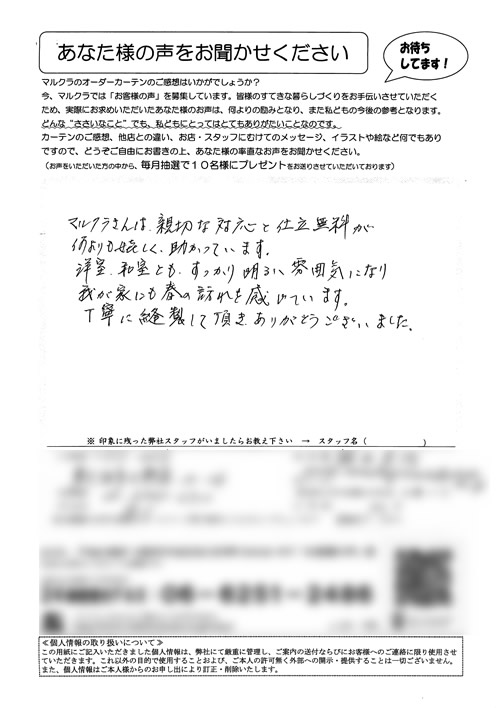 あなた様の声をお聞かせください
お待ち
してます！
マルクラのオーダーカーテンのご感想はいかがでしょうか？
今、マルクラでは「お客様の声」を募集しています。皆様のすてきな暮らしづくりをお手伝いさせていただく
ため、実際にお求めいただいたあなた様のお声は、何よりの励みとなり、また私どもの今後の参考となります。
どんな“ささいなこと”でも、私どもにとってはとてもありがたいことなのです。
カーテンのご感想、他店との違い、お店・スタッフにむけてのメッセージ、イラストや絵など何でもあり
ますので、どうぞご自由にお書きの上、あなた様の率直なお声をお聞かせください。
（お声をいただいた方の中から、毎月抽選で１０名様にプレゼントをお送りさせていただいております）
マルクラさんは、親切な対応と仕立無料が
何よりも嬉しく、助かっています。
洋室、和室とも、すっかり明るい雰囲気になり
我が家にも春の訪れを感じています。
丁寧に縫製して頂き、ありがとうございました。
※ 印象に残った弊社スタッフがいましたらお教え下さい → スタッフ名（　　　　　　）
≪個人情報の取り扱いについて≫
この用紙にご記入いただきました個人情報は、弊社にて厳重に管理し、ご案内の送付ならびにお客様へのご連絡に限り使用させ
ていただきます。これ以外の目的で使用することおよび、ご本人の許可無く外部への開示・提供することは一切ございません。
また、個人情報はご本人様からのお申し出により訂正・削除いたします。